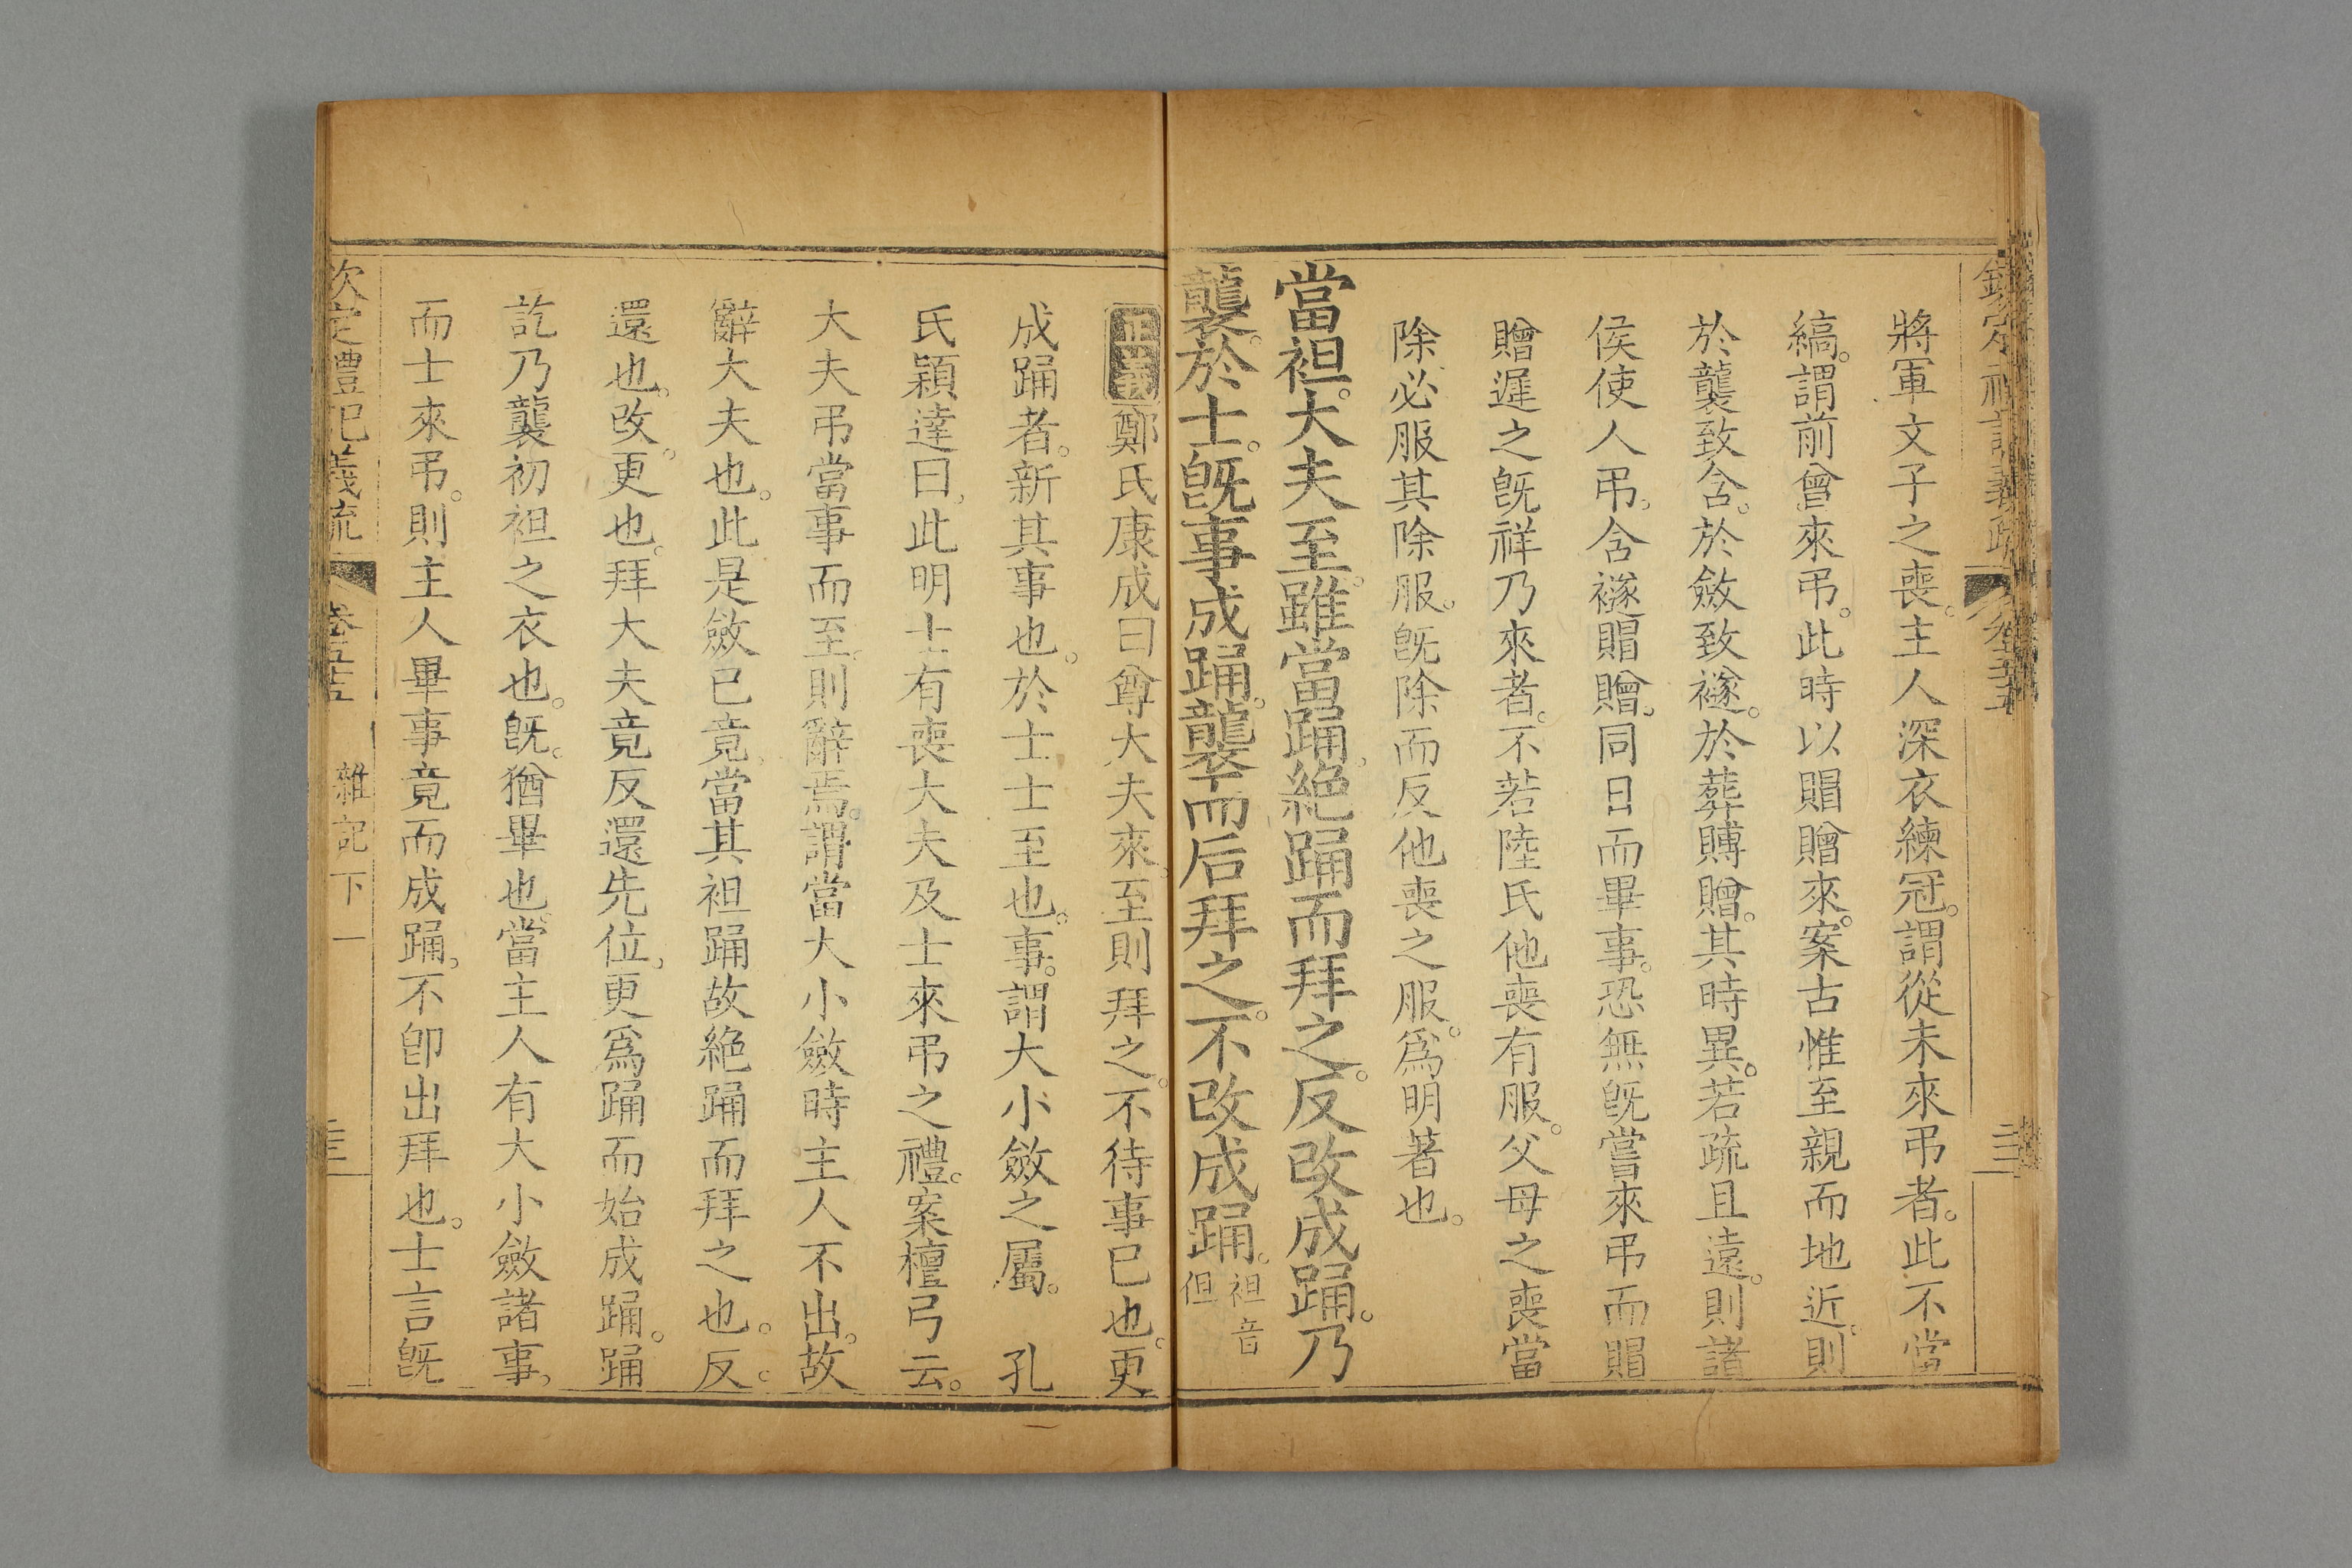 將軍文子之喪。主人深衣練冠。謂從未來弔者。此不當
縞。謂前曾來弔。此時以賵贈來。案古惟至親而地近。則
於襲致含。於斂致襚。於葬賻贈。其時異。若疏且遠。則諸
侯使人弔。含襚賵贈。同日而畢事。恐無旣嘗來弔而賵
贈遲之旣祥乃來者。不若陸氏他喪有服。父母之喪當
除。必服其除服。旣除而反他喪之服。爲明著也。
當袒。大夫至。雖當踊。絕踊而拜之。反改成踊。乃
襲。於士。旣事成踊。襲而后拜之。不改成踊。袒音
但
正義鄭氏康成曰尊大夫來。至則拜之。不待事已也。更
成踊者。新其事也。於士士至也。事。謂大小斂之屬。 孔
氏穎達曰。此明士有喪大夫及士來弔之禮。案檀弓云。
大夫弔當事而至。則辭焉。謂當大小斂時主人不出。故
辭大夫也。此是斂已竟。當其袒踊故絕踊而拜之也。反。
還也。改。更也。拜大夫竟反還先位。更爲踊而始成踊。踊
訖乃襲初袒之衣也。旣。猶畢也。當主人有大小斂諸事。
而士來弔。則主人畢事竟而成踊。不卽出拜也。士言旣
欽定禮記義疏
雜記下 一